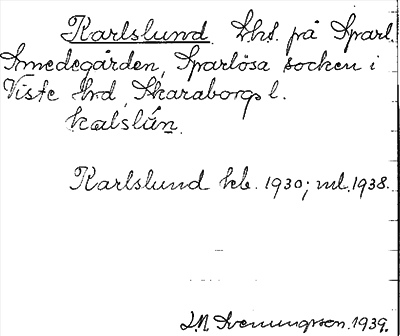 Karlslund. Lhs. på Sparl.
Smedegården, Sparlösa socken i
Viste hrd, Skaraborgs l.
kalslún.
Karlslund kb. 1930; ml. 1938.
Svenungsson. 1939.